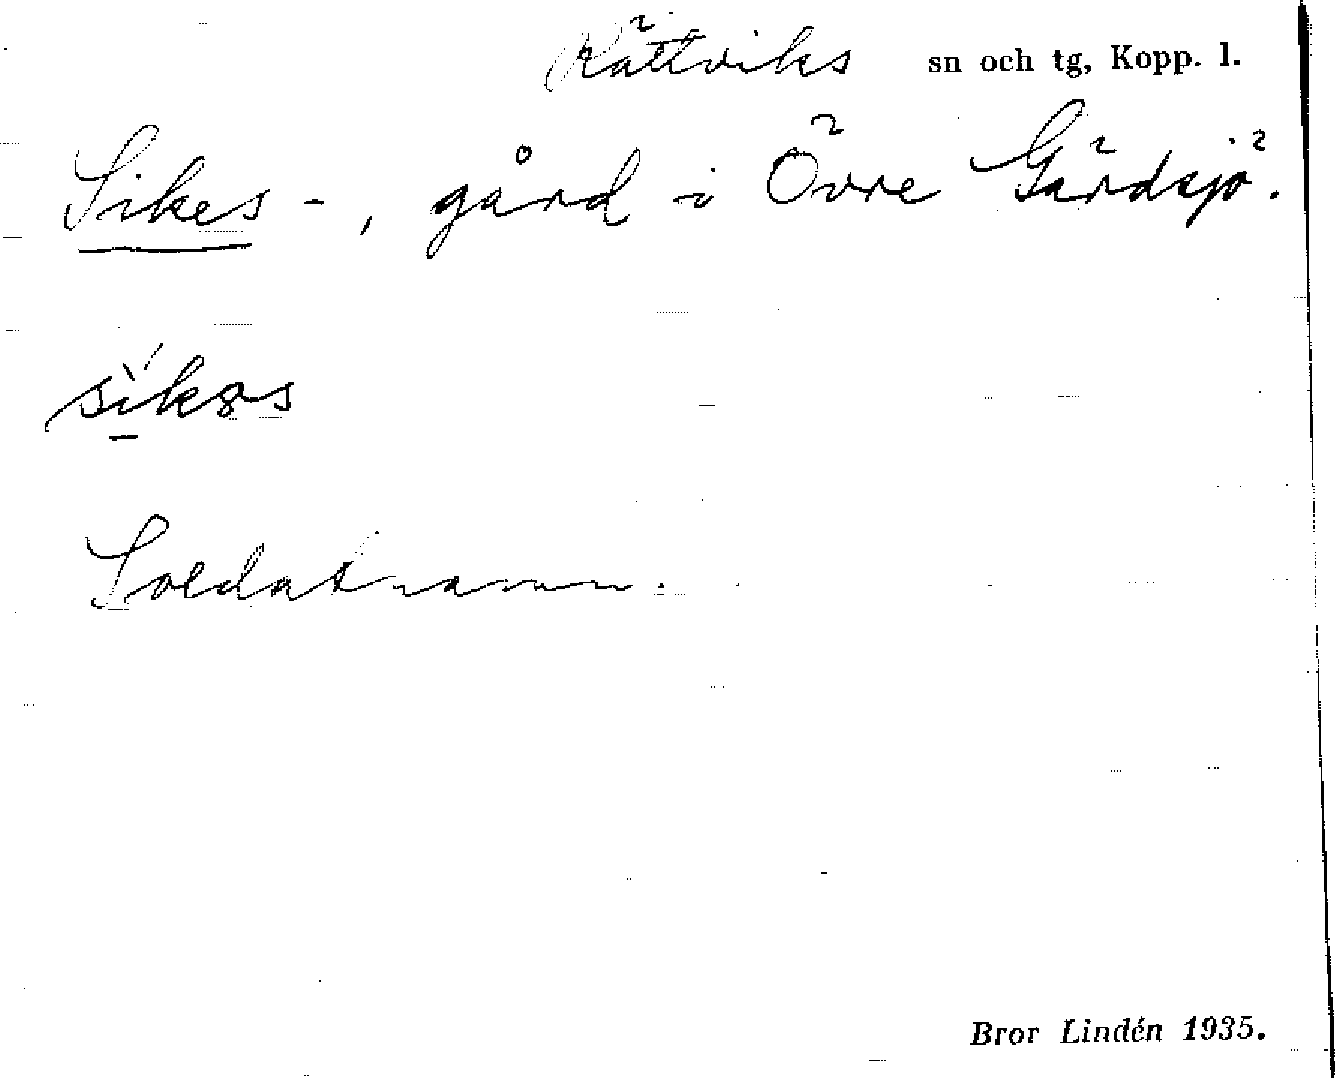 Rättviks sn och tg, Kopp. l.
Sikes-, gård i Övre Gärdsjö.
Soldatnamn.
Bror Lindén 1935.